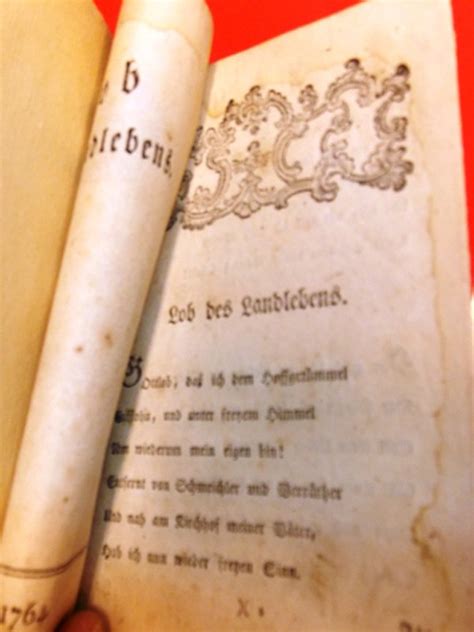 b
dlebens.
1762
Lob des Landlebens.
Gottlob, daß ich dem Hofgetümmel
Entflohn, und unter freyem Himmel
Nun wiederum mein eigen bin!
Entfernt von Schmeichler und Verräther
Und nah am Kirchhof meiner Väter,
Hab ich nun wieder freyen Sinn.